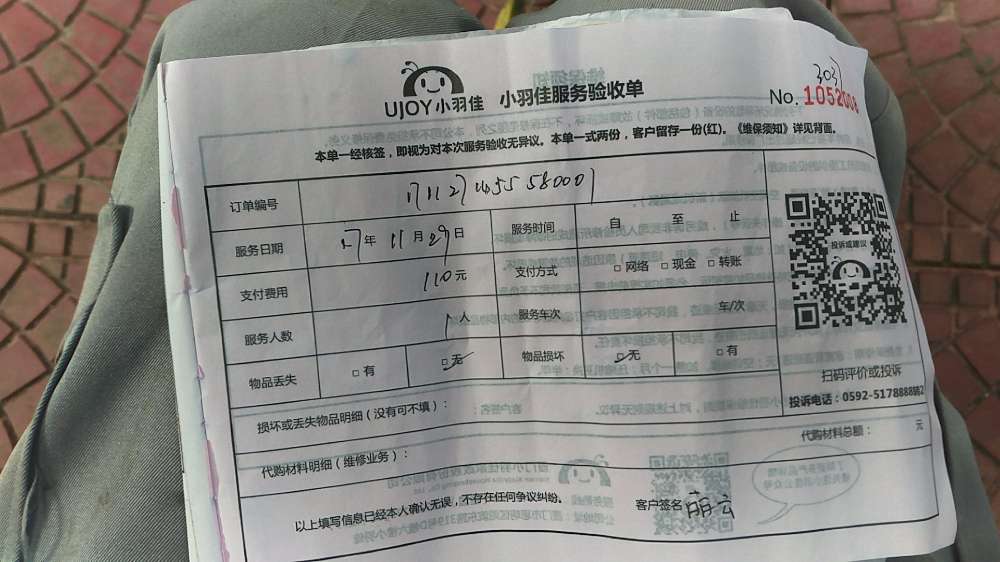 3031
UJOY小羽佳 小羽佳服务验收单 No. 1052008
本单一经核签，即视为对本次服务验收无异议。本单一式两份，客户留存一份(红)。《维保须知》详见背面。
订单编号
服务日期 17年 11月 29日 服务时间 自 至 止
支付费用 110元 支付方式 □网络 □现金 □转账
服务人数 1人 服务车次 车/次
物品丢失 □有 □无 物品损坏 □无 □有
投诉或建议
扫码评价或投诉
投诉电话：0592-5178888
损坏或丢失物品明细（没有可不填）：
代购材料明细（维修业务）： 代购材料总额： 元
以上填写信息已经本人确认无误，不存在任何争议纠纷。 客户签名